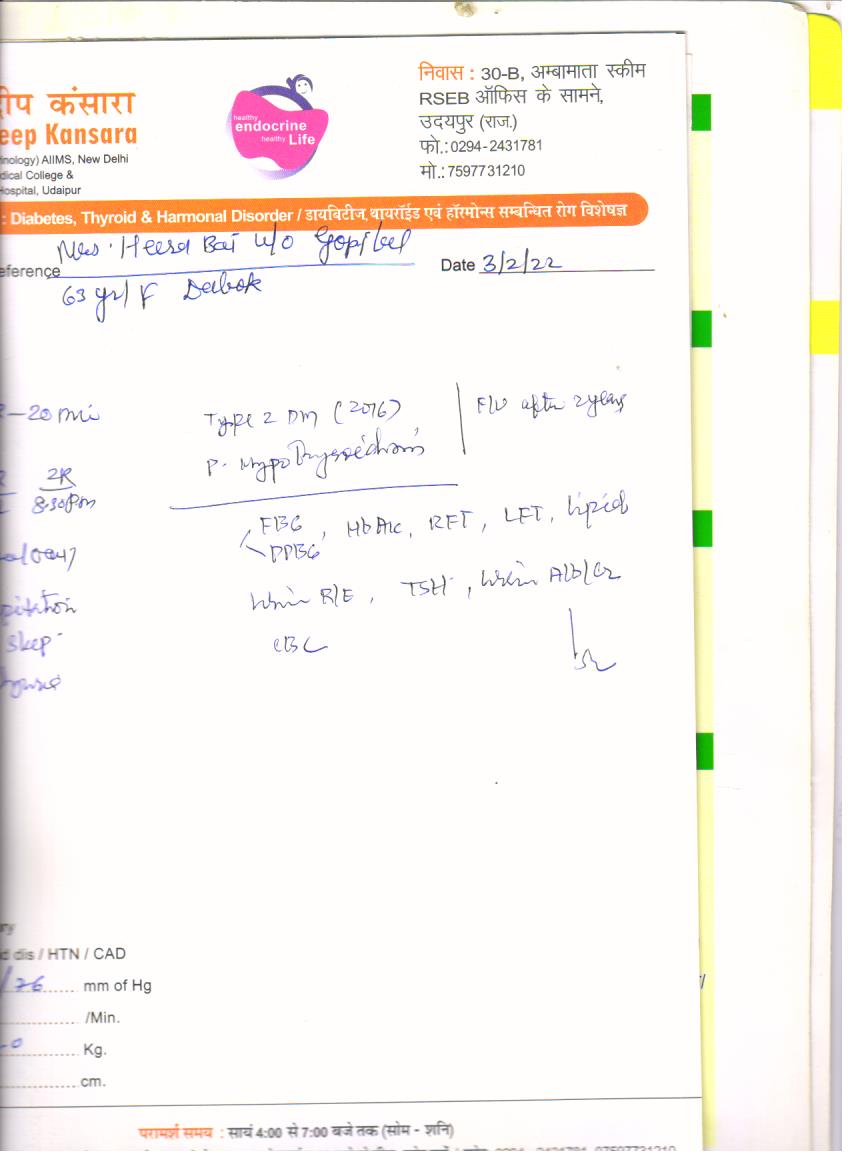 ीप कंसारा
eep Kansara
nology) AIIMS, New Delhi
dical College &
Hospital, Udaipur
healthy
endocrine
healthy Life
निवास : 30-B, अम्बामाता स्कीम
RSEB ऑफिस के सामने,
उदयपुर (राज.)
फो.: 0294-2431781
मो.: 7597731210
: Diabetes, Thyroid & Harmonal Disorder / डायबिटीज, थायरॉईड एवं हॉरमोन्स सम्बन्धित रोग विशेषज्ञ
eference Mrs. Heera Bai w/o Gopilal
Date 3/2/22
63 yr/ F Dabok
-20 mi
Type 2 DM (2016)
F/U after 2 years
P. Hypothyroidism
2R
8:30 Pm
FBG
PPBG, HbA1c, RFT, LFT, Lipid
Urine R/E, TSH, Urine Alb/Cr
CBC
pitation
sleep
d dis / HTN / CAD
/76 mm of Hg
/Min.
Kg.
cm.
परामर्श समय : सायं 4:00 से 7:00 बजे तक (सोम - शनि)